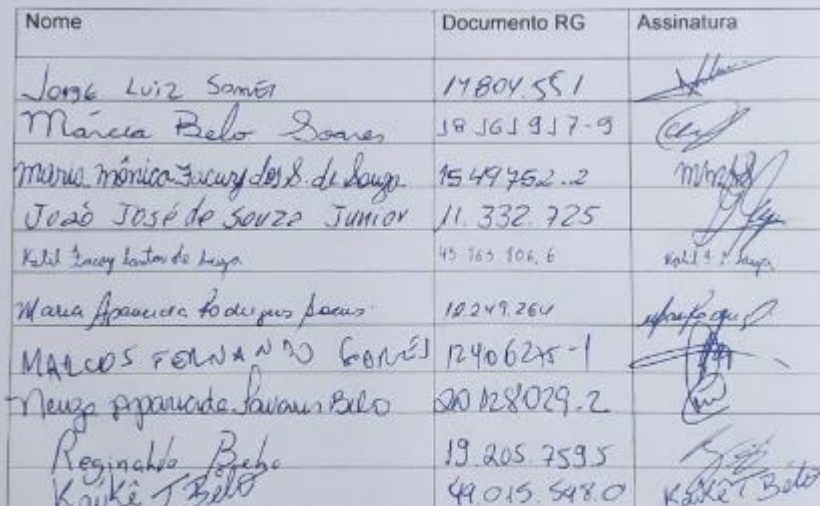 Nome Documento RG Assinatura
Jorge Luiz 17804.551
Márcia Belo Soares 18 161 917-9
Maria Mônica Facury dos S. de Souza 1549752.2
João José de Souza Junior 11.332.725
Kalil Facury Santos de Souza
Maria Aparecida Rodrigues 12.249.264
MARCOS FERNANDO GOMES 12406275-1
Neuza Aparecida Belo 20128029.2
Reginaldo 19.205.7595
Kaikê T Belo 49.015.548.0 Kaikê T Belo